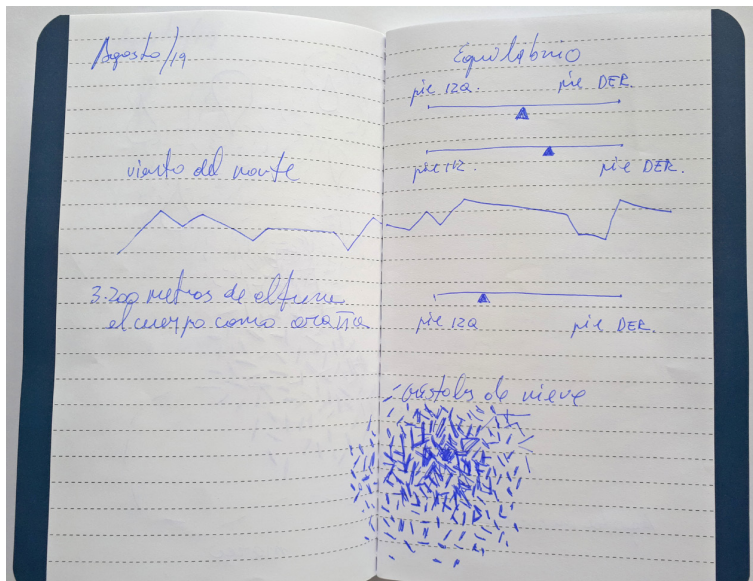 Agosto/19
viento del norte
3.200 metros de altura
el cuerpo como araña
Equilibrio
pie IZQ. pie DER.
pie IZ. pie DER.
pie IZQ pie DER.
cristales de nieve